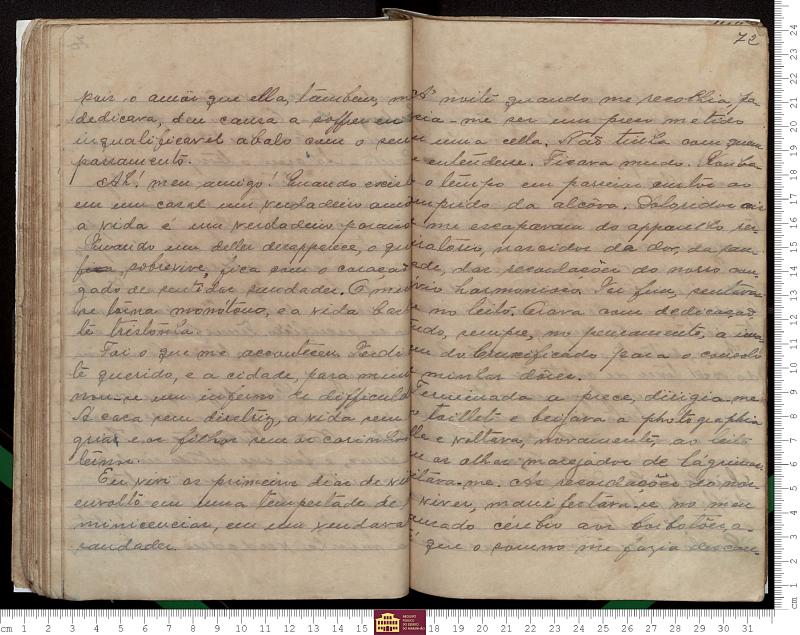 pois o amôr que ella, tambem, m
dedicava, deu causa a soffrer eu
inqualificavel abalo com o seu
passamento.
Ah! meu amigo! Quando existe
em um casal um verdadeiro amo
a vida é um verdadeiro paraiso
Quando um delles desapparece, o que
fica sobrevive, fica com o coração
gado de sentidas saudades. O mun
se torna monótono, e a vida bas
te tristonha.
Foi o que me aconteceu. Perdi
te querido, e a cidade, para mim
nou-se um inferno de difficuld
A casa sem diretriz, a vida sem
e os filhos sem os carinhos
ternos.
Eu vivi os primeiros dias de vi
envolto em uma tempestade de
miniscencias, em um vendava
saudades.
72
A' noite quando me recolhia, pa-
cia-me ser um preso metido
uma cella. Não tinha com quem
entendesse. Ficava mudo. Rouba-
o tempo em passeios curtos ao
da alcôva. Doloridos ais
me escapavam do apparelho res-
ratório, nascidos da dor, da sau-
ade, das recordações do nosso con-
vio harmonioso. Por fim, sentava-
no leito. Orava com dedicação,
endo, sempre, no pensamento, a ima-
em do Crucificado para o consolo
minhas dôres.
Terminada a prece, dirigia-me
toillet e beijava a photographia
lla e voltava, novamente, ao leito
os olhos marejados de lágrimas.
eitava-me. As recordações do nos-
viver, manifestava-se no meu
cérebro aos borbotões, a-
que o somno me fazia descan-
cm 1 2 3 4 5 6 7 8 9 10 11 12 13 14 15
ARQUIVO PÚBLICO DO ESTADO DO MARANHÃO
18 19 20 21 22 23 24 25 26 27 28 29 30 31